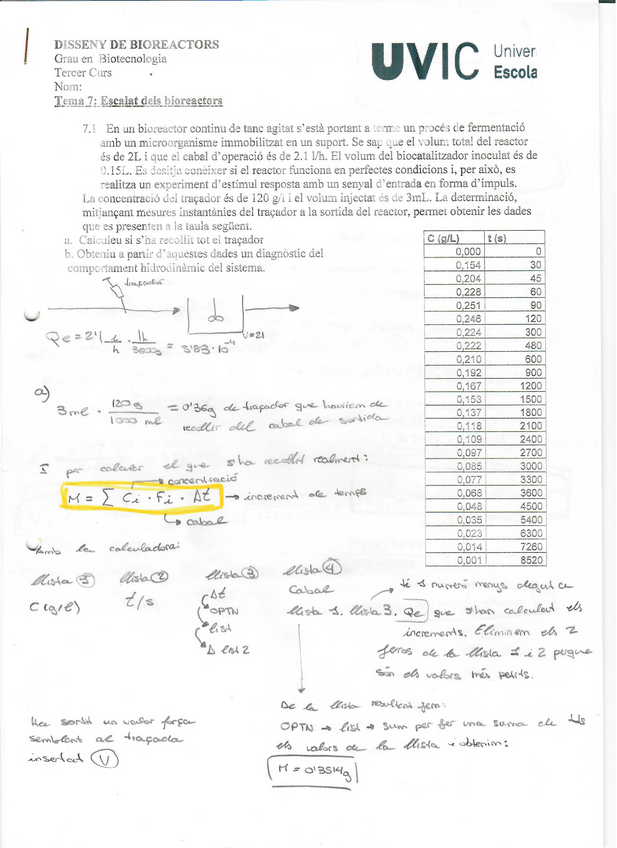 DISSENY DE BIOREACTORS
Grau en Biotecnologia
Tercer Curs
Nom:
Tema 7: Escalat dels bioreactors
UVIC Univer
Escola
7.1 En un bioreactor continu de tanc agitat s'està portant a terme un procés de fermentació
amb un microorganisme immobilitzat en un suport. Se sap que el volum total del reactor
és de 2L i que el cabal d'operació és de 2.1 l/h. El volum del biocatalitzador inoculat és de
0.15L. Es desitja conèixer si el reactor funciona en perfectes condicions i, per això, es
realitza un experiment d'estímul resposta amb un senyal d'entrada en forma d'impuls.
La concentració del traçador és de 120 g/l i el volum injectat és de 3mL. La determinació,
mitjançant mesures instantànies del traçador a la sortida del reactor, permet obtenir les dades
que es presenten a la taula següent.
a. Calculeu si s'ha recollit tot el traçador
b. Obteniu a partir d'aquestes dades un diagnòstic del
comportament hidrodinàmic del sistema.
C (g/L) t (s)
0,000 0
0,154 30
0,204 45
0,228 60
0,251 90
0,246 120
0,224 300
0,222 480
0,210 600
0,192 900
0,167 1200
0,153 1500
0,137 1800
0,118 2100
0,109 2400
0,097 2700
0,085 3000
0,077 3300
0,068 3600
0,048 4500
0,035 5400
0,023 6300
0,014 7260
0,001 8520
traçador
V=2l
Qe = 2'1 l/h · 1h/3600s = 5'83·10⁻⁴
a)
3 ml · 120g/1000 ml = 0'36g de traçador que hauríem de
recollir del cabal de sortida
I per calcular el que s'ha recollit realment:
concentració
M = Σ Ci · Fi · Δt → increment de temps
cabal
Amb la calculadora:
llista 1 llista 2 llista 3 llista 4
C (g/l) t/s Δt Cabal
OPTN llista 1. llista 3. Qe
list
Δ list 2
té 1 número menys degut a
que s'han calculat els
increments. Eliminem els 2
zeros de la llista 1 i 2 perquè
són els valors més petits.
De la llista resultent fem:
OPTN → list → sum per fer una suma de tts
els valors de la llista i obtenim:
M = 0'3514g
Ha sortit un valor força
semblant al traçada
insertat V